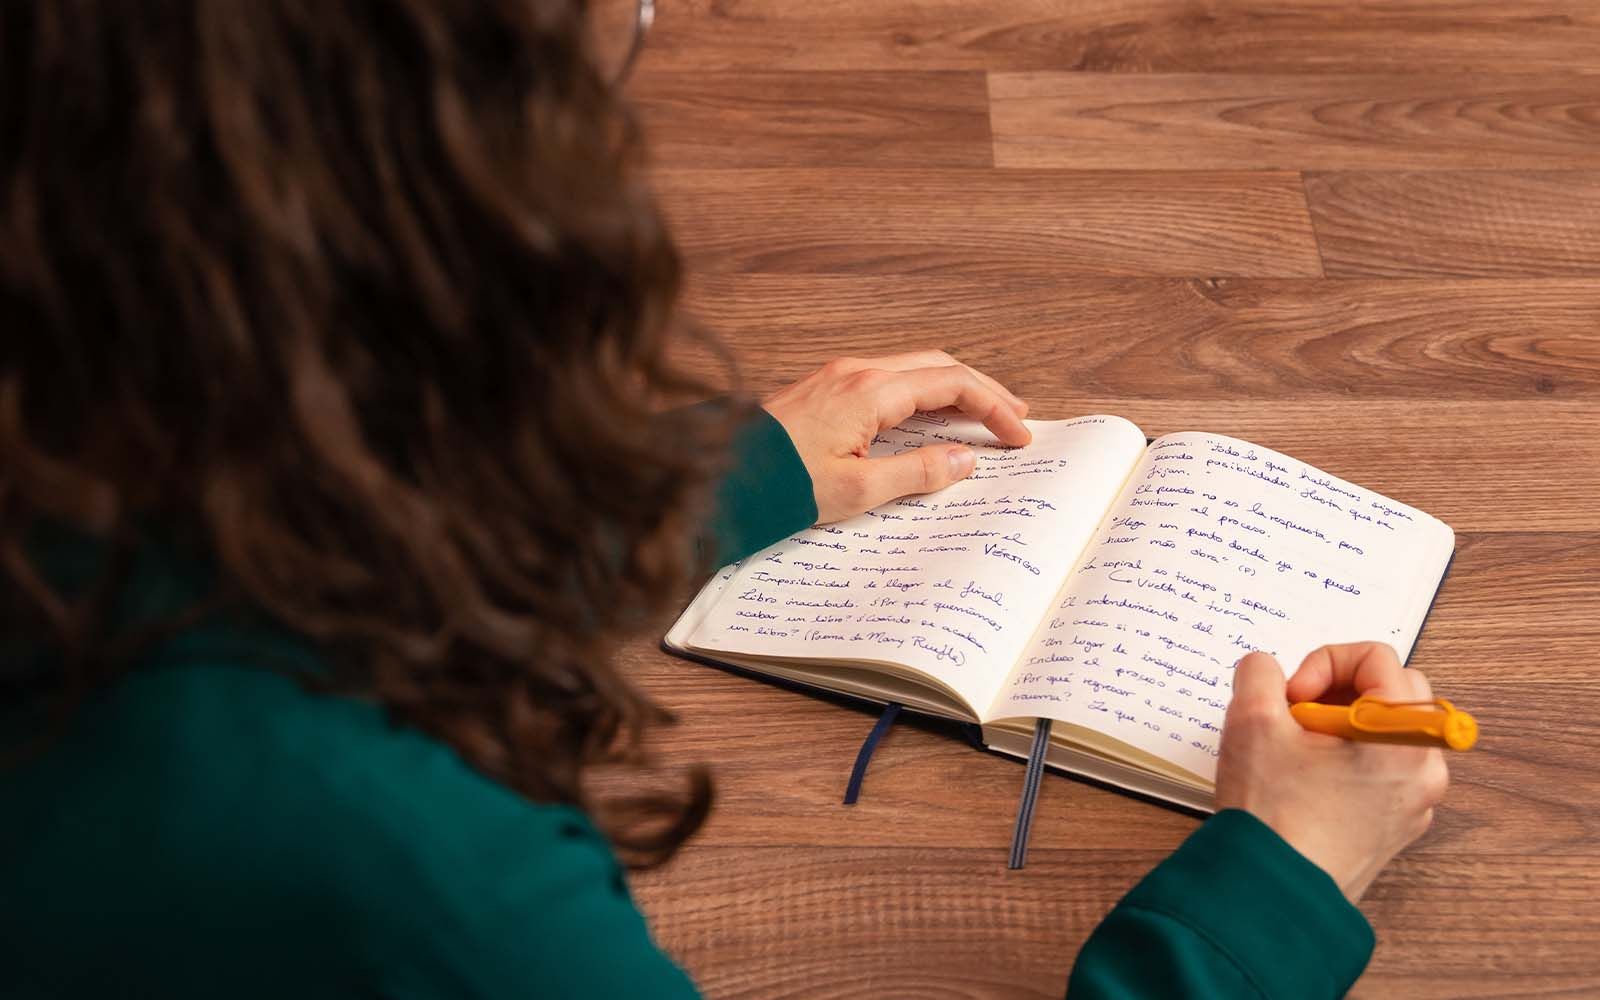 texto e imagen
nucleos.
es un núcleo y
cambia.
dobla y desdobla. La
que ser súper evidente.
no puedo acomodar el
momento, me da VÉRTIGO
La mezcla enriquece.
Imposibilidad de llegar al final.
Libro inacabado. ¿Por qué querríamos
acabar un libro? ¿Cuándo se acaba
un libro? (Poema de Mary Ruefle)
Laura: "Todo lo que hablamos siguen
siendo posibilidades. Hasta que se
fijan."
El punto no es la respuesta, pero
invitar al proceso.
"Llega un punto donde ya no puedo
hacer más obra" (P)
La espiral es tiempo y espacio.
Vuelta de tuerca
El entendimiento del "hacer"
No creces si no regresas a
Un lugar de inseguridad
Incluso el proceso es más
¿Por qué regresar a esos mom
trauma? Lo que no es evid